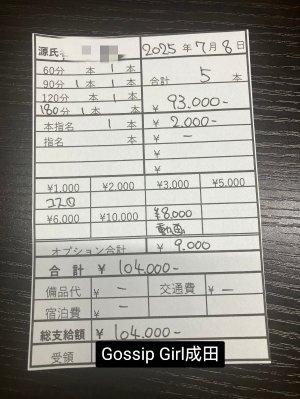 源氏名
2025年7月8日
60分 本 1本
90分 1本 1本
120分 本 1本
180分 1本 本
合計 5本
¥ 93.000-
本指名 1本
¥ 2.000-
指名 本
¥ -
¥
¥
¥1,000 ¥2,000 ¥3,000 ¥5,000
コスプレ
¥6,000 ¥10,000 ¥8,000
動画
オプション合計 ¥ 9.000
合計 ¥ 104.000-
備品代 ¥ - 交通費 ¥ -
宿泊費 ¥ -
総支給額 ¥ 104.000-
受領
Gossip Girl成田